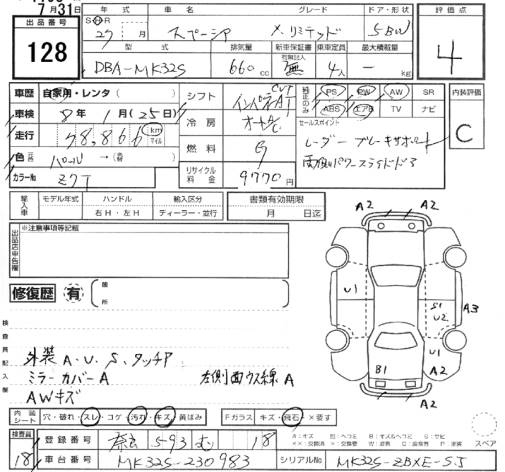 月31日
出品番号
128
年式 車名 グレード ドア・形状
S H R 27 年 月 スペーシア X リミテッド 5BW
型式 排気量 新車保証書 有無 乗車定員 最大積載量
DBA-MK32S 660 cc 無 4人 kg
評価点
4
車歴 自家用・レンタ( )
車検 8年1月(25日)
走行 48,866 km マイル
色 パール →(替 )
カラーNo Z7T
シフト インパネAT CVT
冷房 オートAC
燃料 G
リサイクル料金 9770円
純正のみ PS PW AW SR
ABS エアB TV ナビ
セールスポイント
レーダーブレーキサポート
両側パワースライドドア
内装評価
C
輸入車 モデル年式 ハンドル 右H・左H 輸入区分 ディーラー・並行
書類有効期限 月 日迄
出品店申告欄
※注意事項等記載
修復歴 有 箇所
検査員記入欄
外装 A.U.S.タッチP
ミラーカバーA
AWキズ
左側面ウス線A
A2 A2
U1 S1 U2 A3
U1
B1 A2
A2
内装シート 穴・破れ・スレ・コゲ・汚れ・キズ・黄ばみ Fガラス キズ・飛石・×要す
A:キズ U:ヘコミ B:キズ&ヘコミ W:波
スペア
検査員 18
登録番号 奈良 593 む 18
車台番号 MK32S-230983 シリアルNo MK32S-ZBXE-SJ